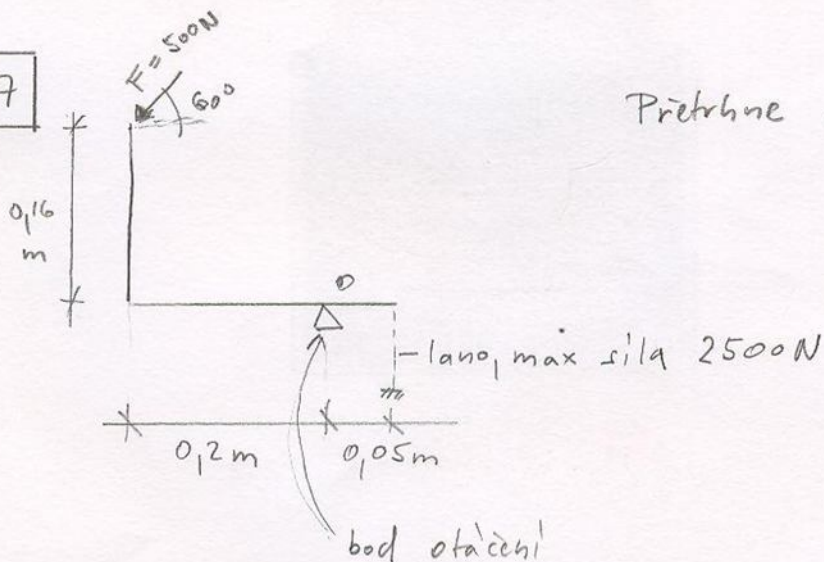 7
F = 500N
60°
Přetrhne
0,16
m
0
lano, max síla 2500N
0,2m
0,05m
bod otáčení